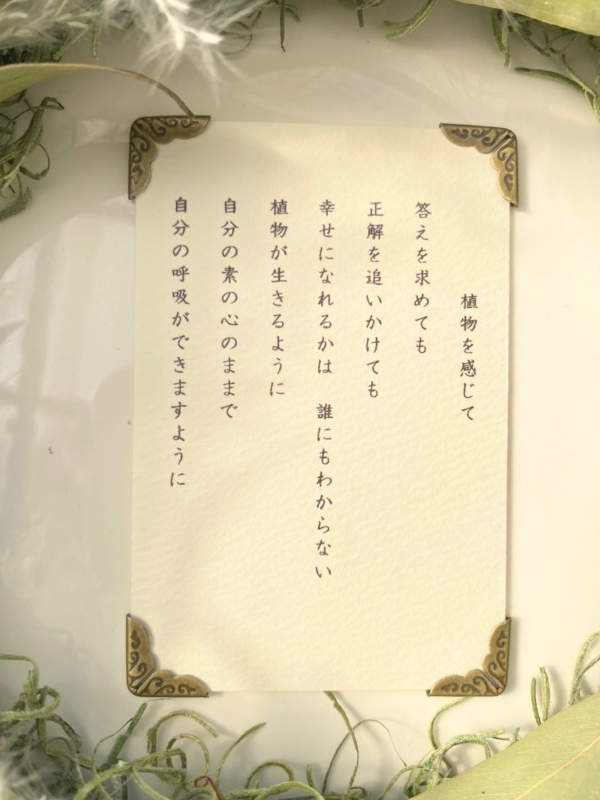 植物を感じて
答えを求めても
正解を追いかけても
幸せになれるかは　誰にもわからない
植物が生きるように
自分の素の心のままで
自分の呼吸ができますように